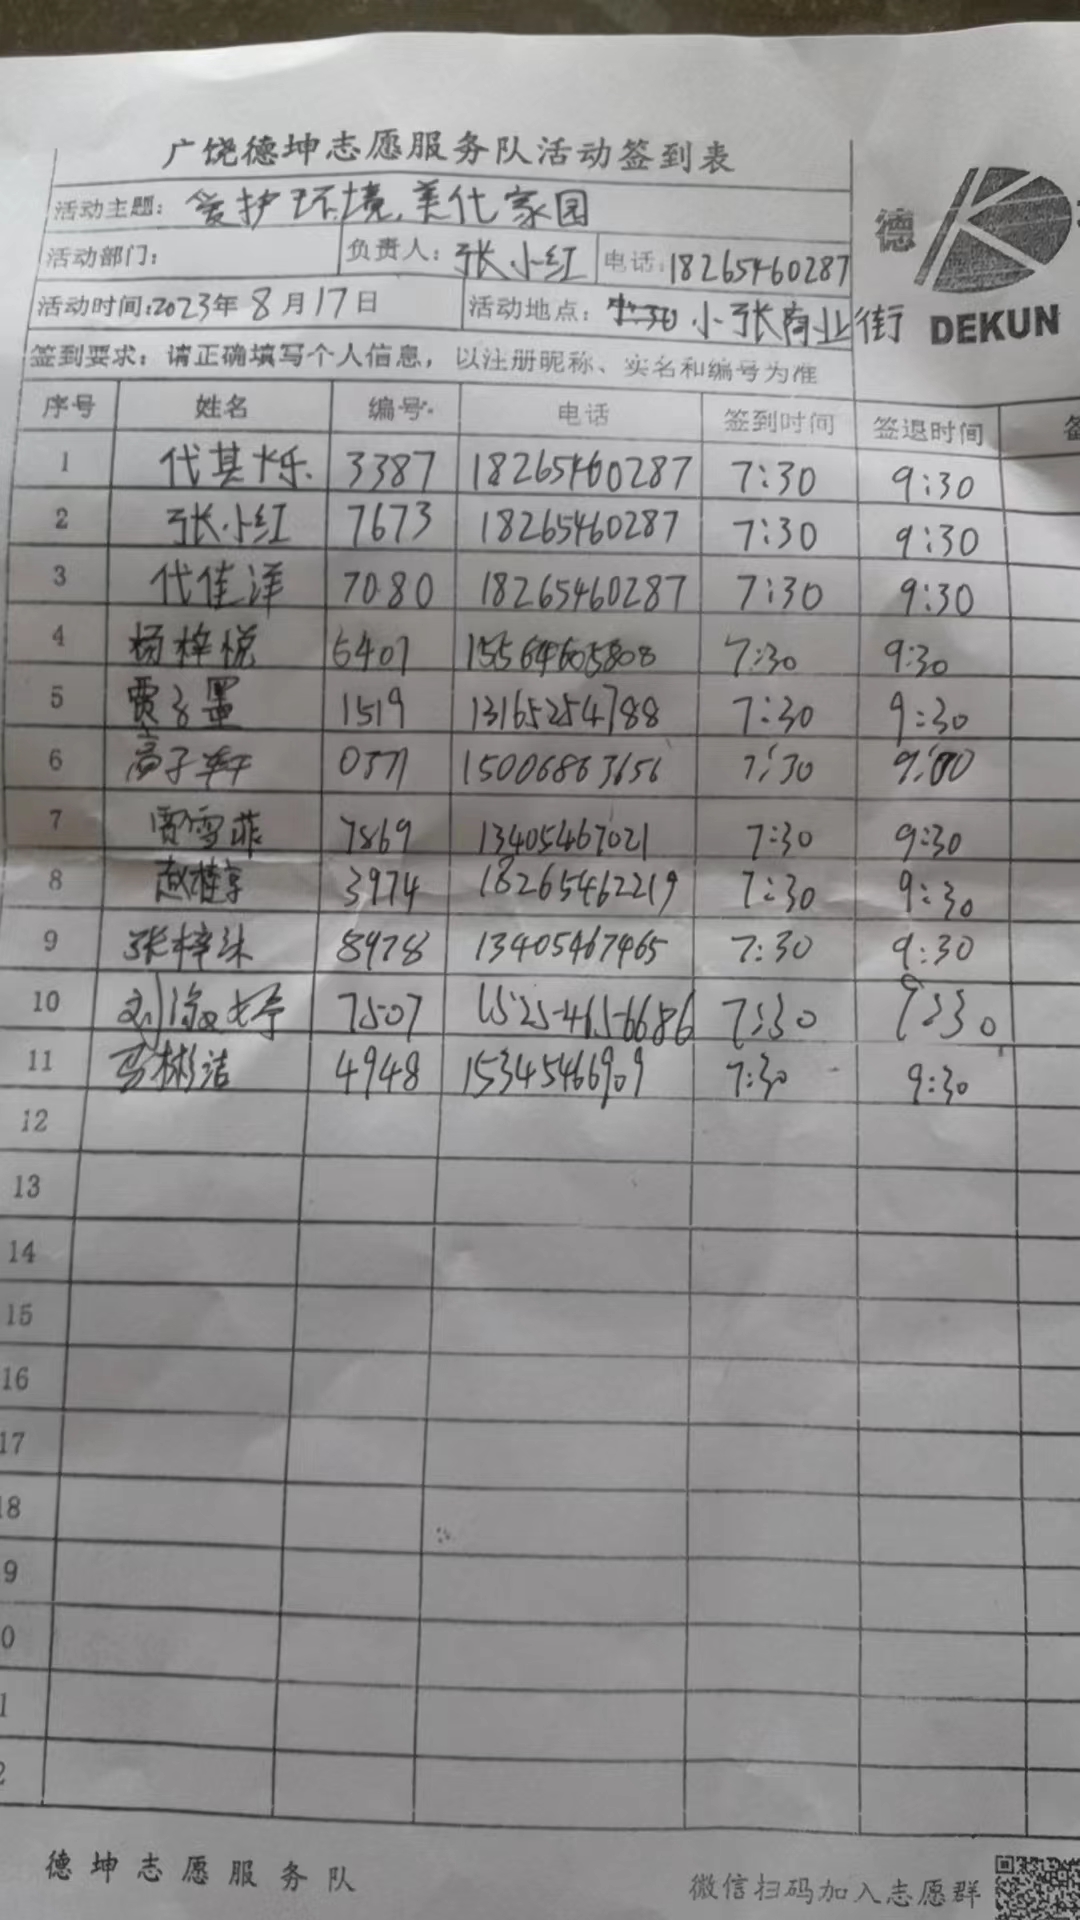 广饶德坤志愿服务队活动签到表
活动主题: 爱护环境,美化家园
活动部门: 负责人: 张小红 电话: 18265460287
活动时间:2023年8月17日 活动地点: 小张商业街
签到要求: 请正确填写个人信息, 以注册昵称、实名和编号为准
德
DEKUN
序号 姓名 编号 电话 签到时间 签退时间
1 代其烁 3387 18265460287 7:30 9:30
2 张小红 7673 18265460287 7:30 9:30
3 代佳洋 7080 18265460287 7:30 9:30
4 杨梓悦 6407 15564605808 7:30 9:30
5 贾子墨 1519 13165254788 7:30 9:30
6 高子轩 0371 15006863656 7:30 9:00
7 贾雪菲 7869 13405467021 7:30 9:30
8 赵梓亨 3974 18265462219 7:30 9:30
9 张梓沐 8978 13405467465 7:30 9:30
10 刘淑婷 7507 1525-465-6686 7:30 9:30
11 马彬洁 4948 15345466909 7:30 9:30
12
13
14
15
16
17
18
9
0
1
2
德坤志愿服务队
微信扫码加入志愿群